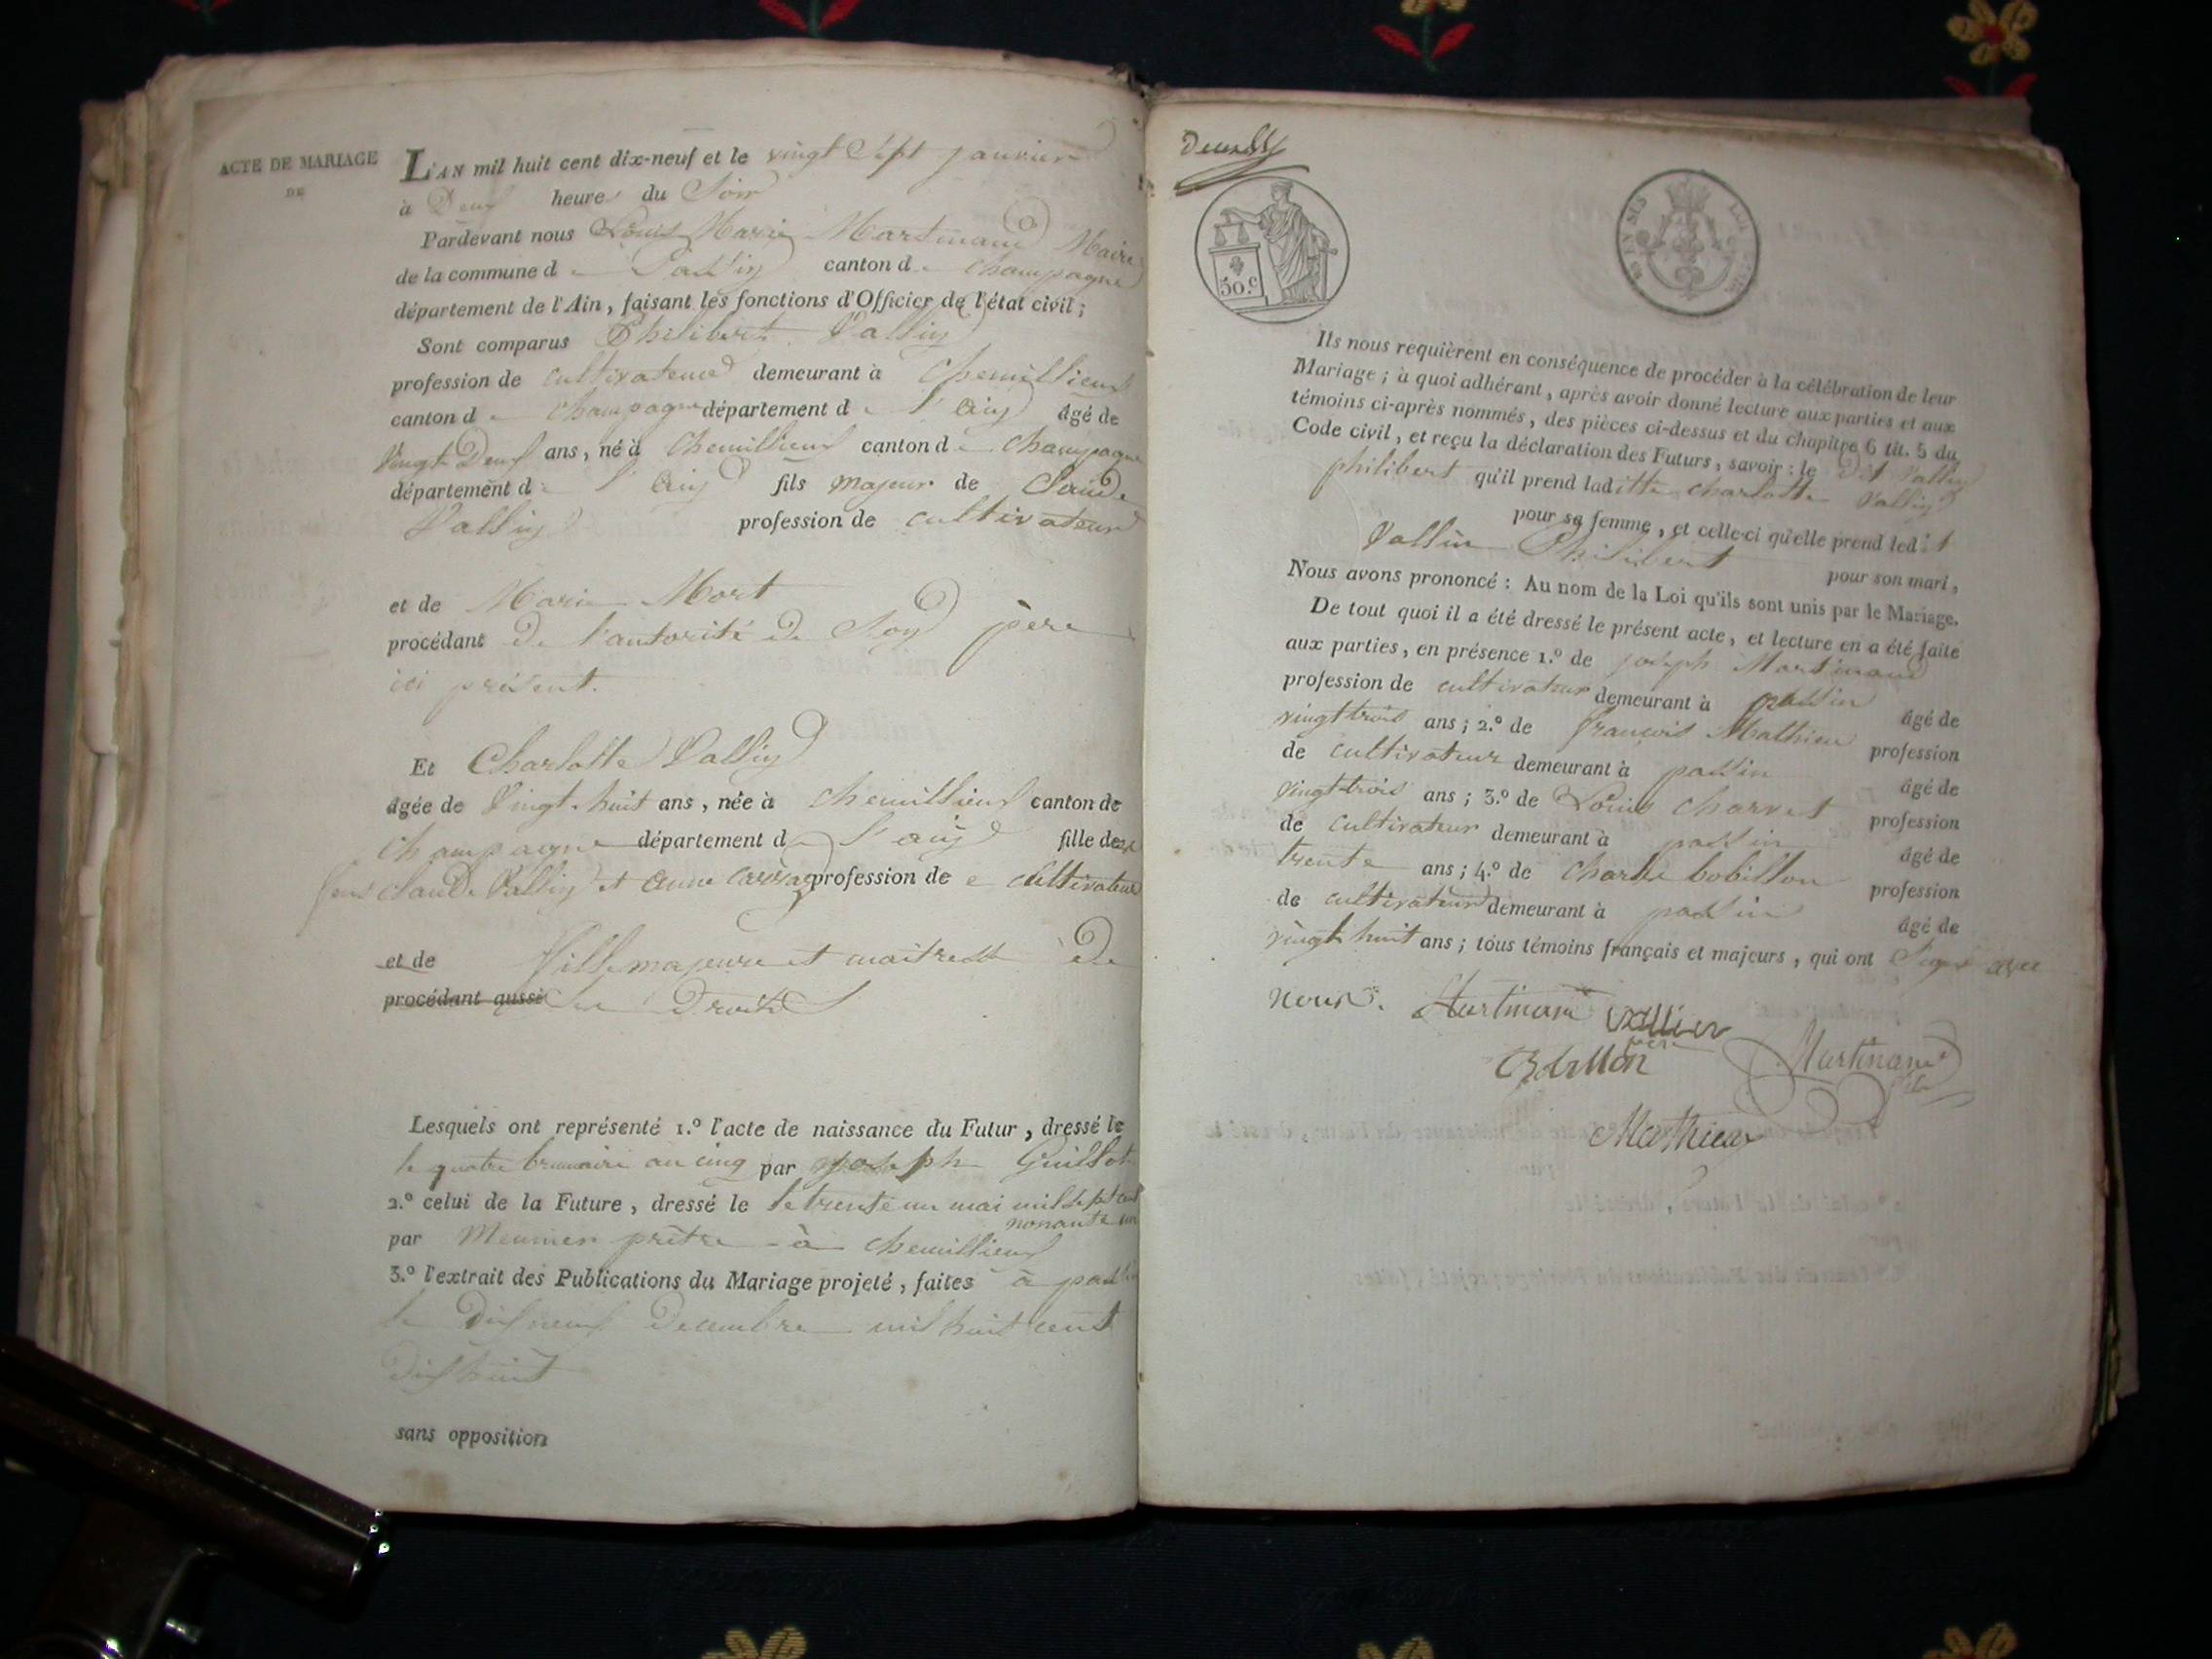 ACTE DE MARIAGE
DE
L'AN mil huit cent dix-neuf et le vingt Sept janvier
à Deux heures du Soir
Pardevant nous Louis Marie Martinand Maire
de la commune de Passin canton de Champagne
département de l'Ain, faisant les fonctions d'Officier de l'état civil;
Sont comparus Philibert Vallin
profession de cultivateur demeurant à Chemillieux
canton de champagne département de l'ain âgé de
Vingt Deux ans, né à Chemillieux canton de Champagne
département de l'ain fils majeur de Claude
Vallin profession de cultivateur
et de Marie Mort
procédant de l'autorité de Son père
ici présent.
Et Charlotte Vallin
âgée de Vingt-huit ans, née à chemillieux canton de
champagne département de l'ain fille de
feus claude Vallin et anne profession de cultivateur
et de fille majeure et maitresse de
procédant aussi Ses Droits
Lesquels ont représenté 1.º l'acte de naissance du Futur, dressé le
le quatre brumaire an cinq par joseph Guillot
2.º celui de la Future, dressé le le trente un mai mil sept cent
nonante un
par Meunier prêtre à chemillieux
3.º l'extrait des Publications du Mariage projeté, faites à passin
le Dixneuf Decembre mil huit cent
Dixhuit
sans opposition
50.c
Ils nous requièrent en conséquence de procéder à la célébration de leur
Mariage; à quoi adhérant, après avoir donné lecture aux parties et aux
témoins ci-après nommés, des pièces ci-dessus et du chapitre 6 tit. 5 du
Code civil, et reçu la déclaration des Futurs, savoir: le Dit Vallin
philibert qu'il prend laditte charlotte Vallin
pour sa femme, et celle-ci qu'elle prend ledit
Vallin Philibert pour son mari,
Nous avons prononcé: Au nom de la Loi qu'ils sont unis par le Mariage.
De tout quoi il a été dressé le présent acte, et lecture en a été faite
aux parties, en présence 1.º de joseph Martinand
profession de cultivateur demeurant à passin âgé de
vingt trois ans; 2.º de françois Mathieu profession
de cultivateur demeurant à passin âgé de
vingt trois ans; 3.º de Louis charvet profession
de cultivateur demeurant à passin âgé de
trente ans; 4.º de Charle bobillon profession
de cultivateur demeurant à passin âgé de
vingt huit ans; tous témoins français et majeurs, qui ont Signé avec
nous. Martinand Vallin
père
Bobillon Martinand
Mathieu